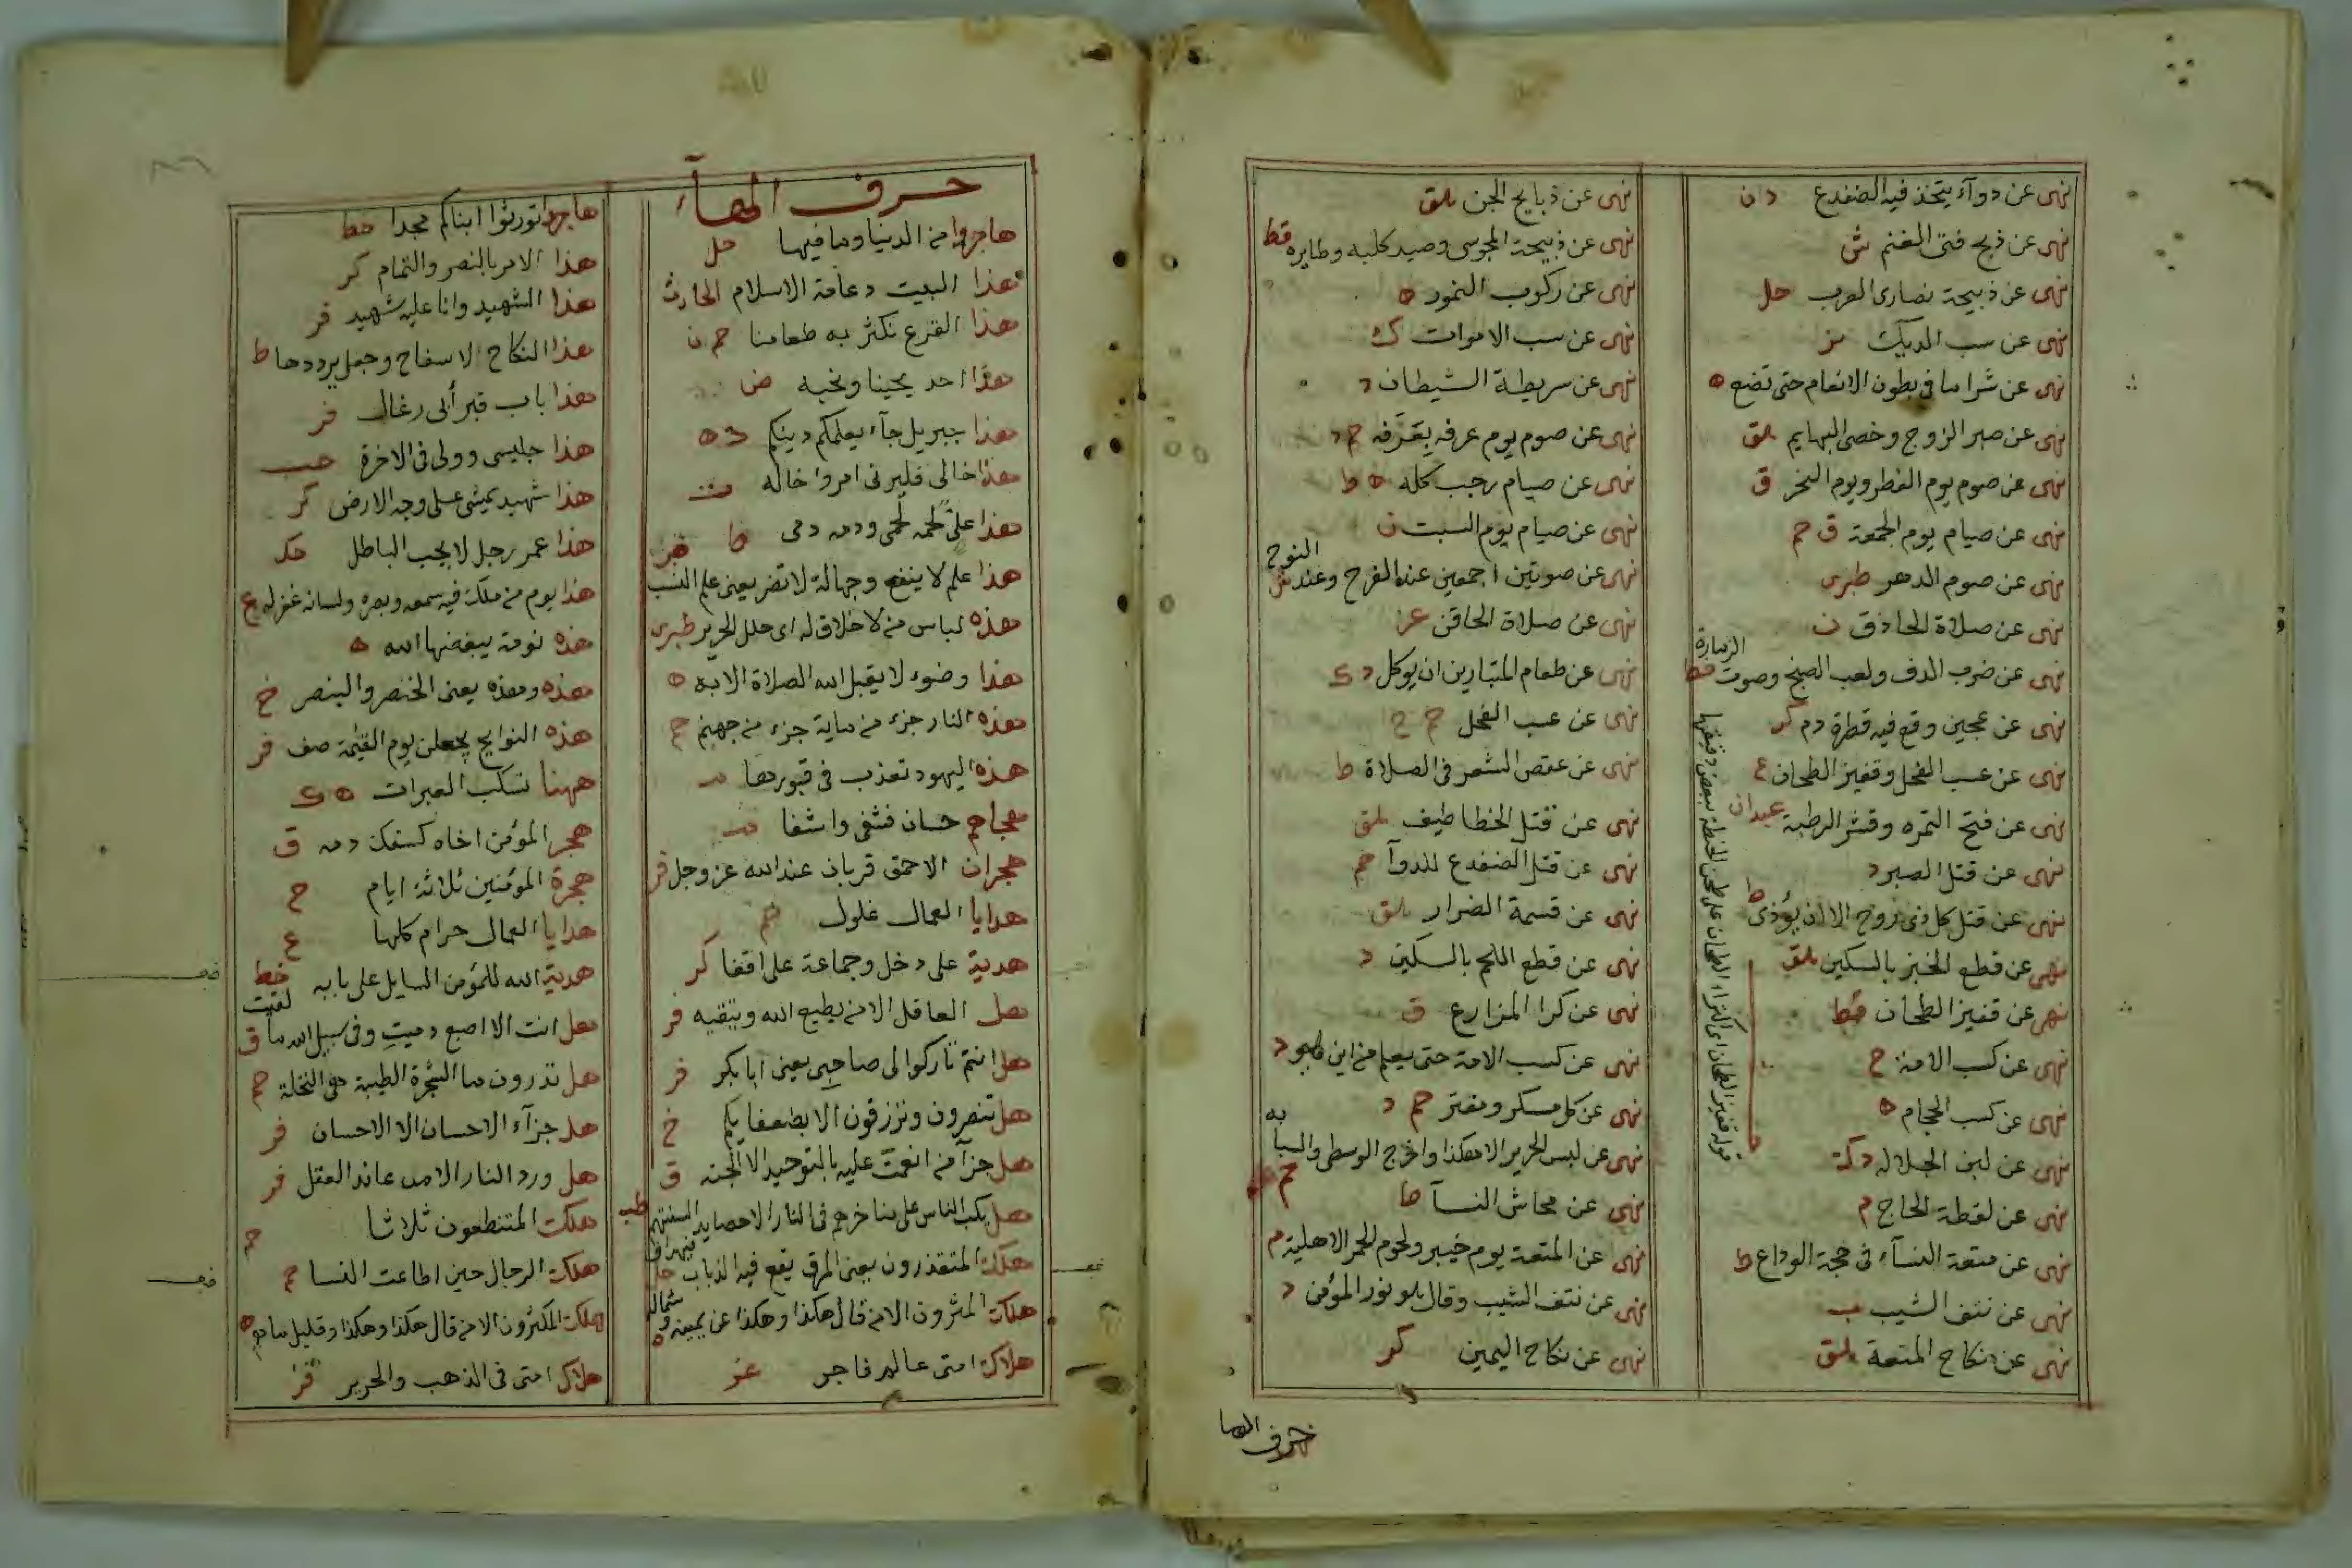 نهى عن دوآء يتخذ فيه الضفدع د ن
نهى عن ذبح فتى الغنم ش
نهى عن ذبيحة نصارى العرب حل
نهى عن سب الديك بز
نهى عن شرا ما فى بطون الانعام حتى تضع ه
نهى عن صبر الزوج وخصى البهايم هق
نهى عن صوم يوم الفطر ويوم النحر ق
نهى عن صيام يوم الجمعة ق حم
نهى عن صوم الدهر طبرى
نهى عن صلاة الحاذق ن
نهى عن ضرب الدف ولعب الصنج وصوت الزمارة خط
نهى عن عجين وقع فيه قطرة دم كر
نهى عن عسب الفحل وقفيز الطحان ع
نهى عن فتح التمره وقشر الرطبة عبدان
نهى عن قتل الصبر د
نهى عن قتل كل ذى روح الا ان يؤذى ط
نهى عن قطع الخبز بالسكين هق
نهى عن قفيز الطحان قط
نهى عن كسب الامة خ
نهى عن كسب الحجام ه
نهى عن لبن الجلاله د ك
نهى عن لقطة الحاج م
نهى عن متعة النسآء فى حجة الوداع ط
نهى عن نتف الشيب
نهى عن نكاح المتعة هق
قوله قفيز الطحان اى كراء الطحان على طحن الحنطة ببعض دقيقها
نهى عن ذبايح الجن هق
نهى عن ذبيحة المجوسى وصيد كلبه وطايره قط
نهى عن ركوب النمور ه
نهى عن سب الاموات ك
نهى عن سريطة الشيطان د
نهى عن صوم يوم عرفه بعرفه حم د
نهى عن صيام رجب كله ه ط
نهى عن صيام يوم السبت ن
نهى عن صوتين اجمعين عند الفرح وعند النوح
نهى عن صلاة الحاقن عز
نهى عن طعام المتبارين ان يوكل د ك
نهى عن عسب الفحل حم خ
نهى عن عقص الشعر فى الصلاة ط
نهى عن قتل الخطاطيف هق
نهى عن قتل الضفدع للدوآ حم
نهى عن قسمة الضرار هق
نهى عن قطع اللحم بالسكين د
نهى عن كرا المزارع ق
نهى عن كسب الامة حتى يعلم من اين هو د
نهى عن كل مسكر ومفتر حم د
نهى عن لبس الحرير الا هكذا واخرج الوسطى والسبابه حم
نهى عن محاش النسآ طا
نهى عن المتعة يوم خيبر ولحوم الحمر الاهلية م
نهى عن نتف الشيب وقال هو نور المؤمن د
نهى عن نكاح اليمين كر
حرف الها
حرف الهآء
هاجروا من الدنيا وما فيها حل
هذا البيت دعامة الاسلام الحارث
هذا القرع نكثر به طعامنا حم ن
هذا احد يحبنا ونحبه ض
هذا جبريل جآء يعلمكم دينكم د ه
هذا خالى فليرنى امروا خاله ت
هذا على لحمه لحمى ودمه دمى طا
هذا علم لا ينفع وجهالة لا تضر يعنى علم النسب
هذه لباس من لا خلاق له اى حلل الحرير طبرى
هذا وضوء لا يقبل الله الصلاة الا به ه
هذه النار جزء من ماية جزء من جهنم حم
هذه اليهود تعذب فى قبورها
هجاهم حسان فشفى واشفا
هجران الاحمق قربان عند الله عز وجل فر
هدايا العمال غلول حم
هدية على دخل وجماعة على اقذا كر
هل العاقل الا من يطيع الله ويتقيه فر
هل انتم تاركوا لى صاحبى يعنى ابا بكر فر
هل تنصرون وترزقون الا بضعفايكم خ
هل جزآ من انعمت عليه بالتوحيد الا الجنه ق
هل يكب الناس على مناخرهم فى النار الا حصايد السنتهم طب
هلكت المتقذرون يعنى المرق يقع فيه الذباب فيهراق حل
هلكت المثرون الا من قال هكذا وهكذا عن يمينه وشماله ه
هلاك امتى عالم فاجر عز
هاجروا تورثوا ابناكم مجدا خط
هذا الامر بالنصر والتمام كر
هذا الشهيد وانا عليه شهيد فر
هذا النكاح لا سفاح وجعل يرددها ط
هذا باب قبر أبى رغال فر
هذا جليسى وولى فى الاخرة حب
هذا شهيد يمشى على وجه الارض كر
هذا عمر رجل لا يحب الباطل حد
هذا يوم من ملك فيه سمعه وبصره ولسانه غفر له ع
هذه نومة يبغضها الله ه
هذه وهذه يعنى الخنصر والبنصر خ
هذه النوايح يجعلن يوم القيمة صف فر
ههنا تسكب العبرات ه ك
هجر المؤمن اخاه كسفك دمه ق
هجرة المؤمنين ثلاثة ايام ح
هدايا العمال حرام كلها ع
هدية الله للمؤمن السايل على بابه خط
هل انت الا اصبع دميت وفى سبيل الله ما لقيت ق
هل تدرون ما الشجرة الطيبة هى النخلة حم
هل جزآء الاحسان الا الاحسان فر
هل ورد النار الا من عاند العقل فر
هلكت المتنطعون ثلاثا م
هلكت الرجال حين اطاعت النسا حم
هلكت المكثرون الا من قال هكذا وهكذا وقليل ما هم ه
هلاك امتى فى الذهب والحرير فر